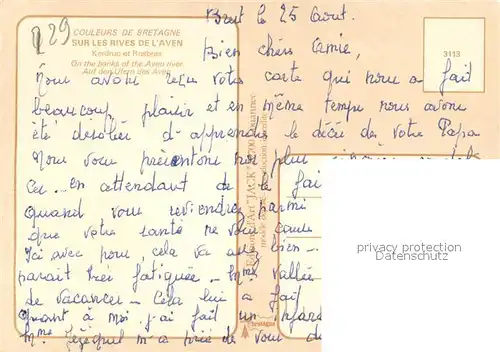 29
COULEURS DE BRETAGNE
SUR LES RIVES DE L'AVEN
Kerdruc et Rosbras
On the banks of the Aven river
Auf den Ufern des Aven
3113
Brest le 25 Aout.
Bien chers Amie,
Nous avons reçu votre carte qui nous a fait
beaucoup plaisir et en même temps nous avons
été désolée d'apprendre le décès de votre Papa
Nous vous présentons nos plus
en attendant de le fai
quand vous reviendrez parmi
que votre santé ne vous cause
Ici avec nous, cela va assez bien -
parait très fatiguée - Mme Vallée
de vacances - Cela lui a fait
Quant à moi j'ai fait un
Mme Jézéquel m'a prié de vous d
privacy protection
Datenschutz